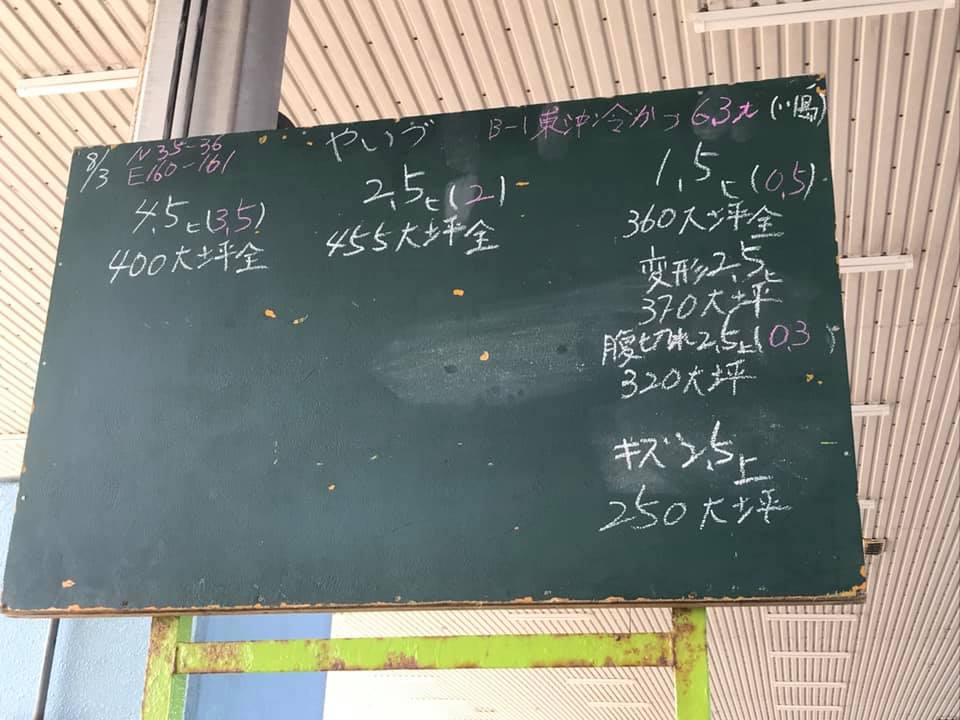 8/3 N35-36
E160-161
やいづ
B-1東沖冷かつ 63大 (川島)
4,5上(3,5)
400大坪全
2,5上(2)
455大坪全
1,5上(0,5)
360大坪全
変形2,5上
370大坪
腹切れ2,5上(0,3)
320大坪
キズ2,5上
250大坪